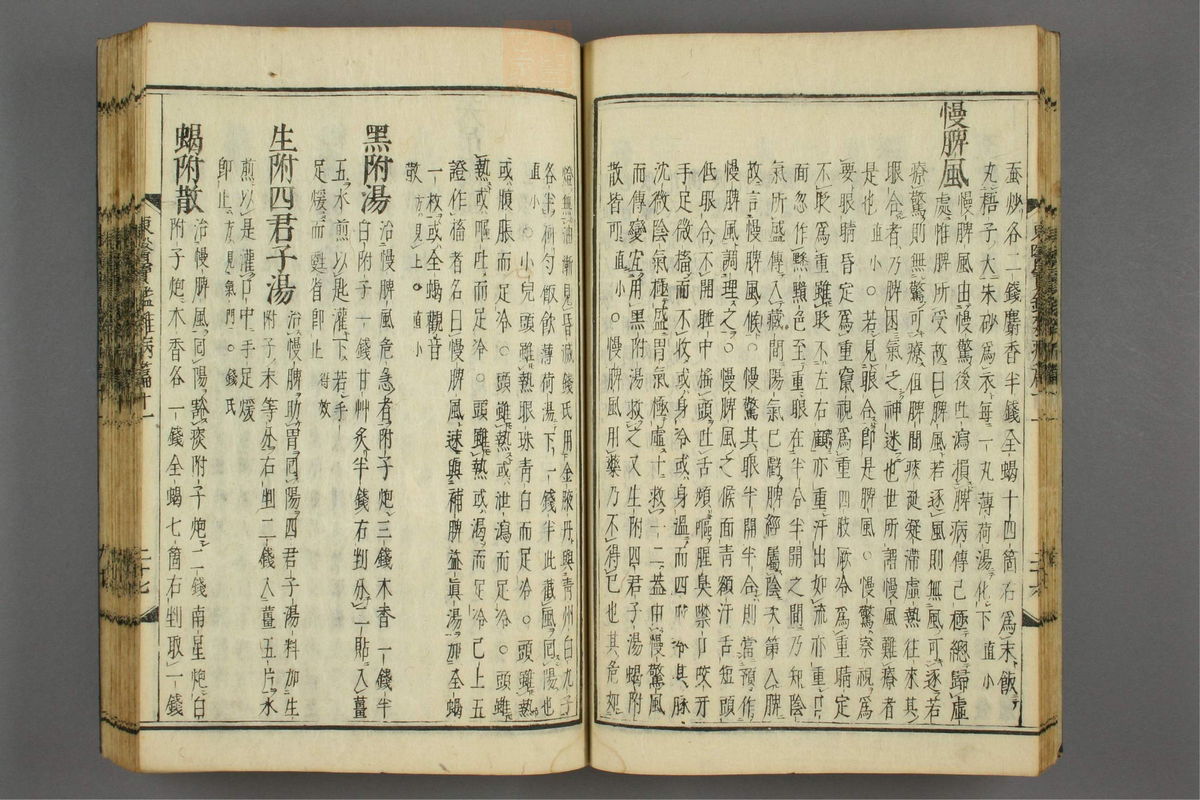 蚕炒各二錢麝香半錢全蝎十四箇右為末飯
丸梧子大朱砂為衣每一丸薄荷湯化下直小
慢脾風
慢脾風由慢驚後吐瀉損脾病傳已極總歸虛
處惟脾所受故曰脾風若逐風則無風可逐若
療驚則無驚可療但脾間痰涎凝滯虛熱往來其
眼合者乃脾困氣乏神迷也世所謂慢風難療者
是也直小○若見眼合即是脾風○慢驚察視為
要眼睛昏定為重窠視為重四肢厥冷為重睛定
不眨為重雖眨不左右顧亦重汗出如流亦重口
面忽作黲黯色至重眼在半合半開之間乃知陰
氣所盛傳入藏間陽氣已虧脾經屬陰次第入脾
故言慢脾風候○慢驚其眼半開半合則當預作
慢脾風調理之○慢脾風之候面青額汗舌短頭
低眼合不開睡中搖頭吐舌頻嘔腥臭噤口咬牙
手足微搐而不收或身冷或身溫而四肢冷其脉
沈微陰氣極盛胃氣極虛十救一二蓋由慢驚風
而傳變宜用黑附湯救之又生附四君子湯蝎附
散皆可直小○慢脾風用藥乃不得已也其危如
燈無油漸見昏滅錢氏用金液丹與青州白丸子
各半硏勻飯飲薄荷湯下一錢半此截風回陽也
直小○小兒頭雖熱眼珠青白而足冷○頭雖熱
或腹脹而足冷○頭雖熱或泄瀉而足冷○頭雖
熱或嘔吐而足冷○頭雖熱或渴而足冷已上五
證作搐者名曰慢脾風速與補脾益眞湯加全蝎
一枚或全蝎觀音
散方見上○直小
黑附湯
治慢脾風危急者附子炮三錢木香一錢半
白附子一錢甘艸灸半錢右剉分二貼入薑
五水煎以匙灌下若手
足煖而甦皆即止得效
生附四君子湯
治慢脾助胃回陽四君子湯料加生
附子末等分右剉二錢入薑五片水
煎以是灌口中手足煖
即止方見氣門○錢氏
蝎附散
治慢脾風回陽豁痰附子炮二錢南星炮白
附子炮木香各一錢全蝎七箇右剉取一錢
東醫寶鑑雜病篇十一
二十七